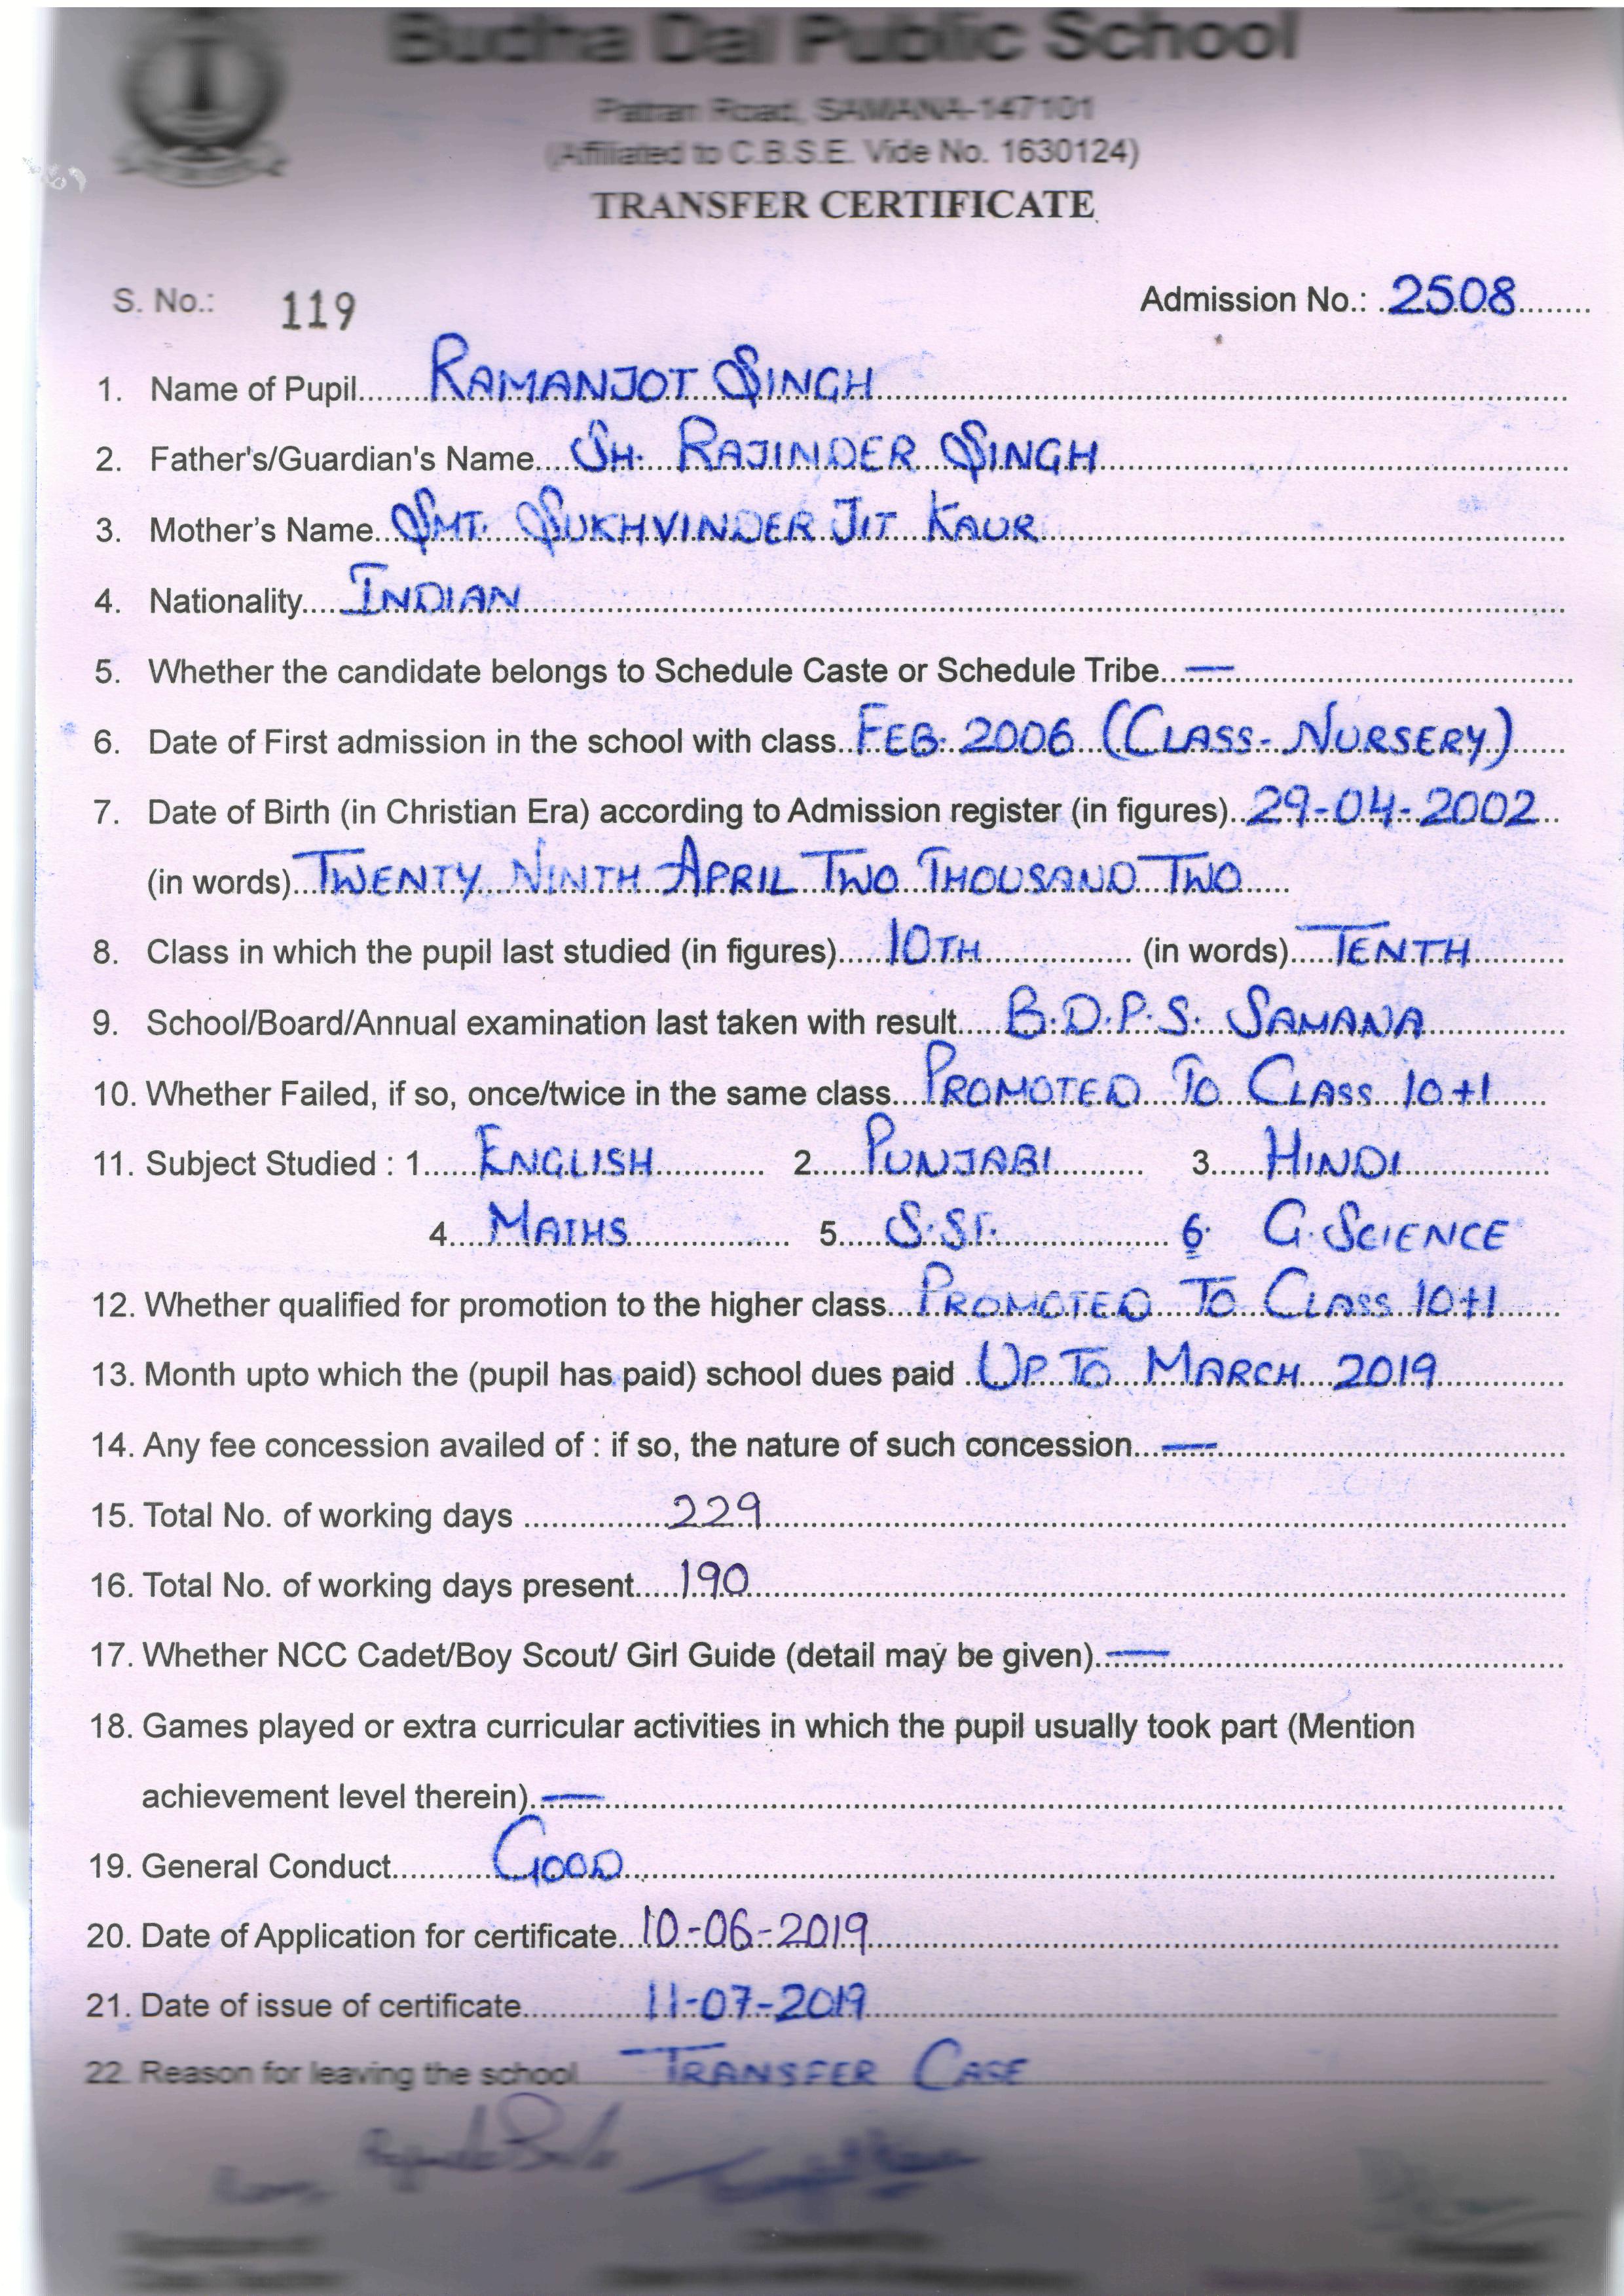 Budha Dal Public School
Patran Road, SAMANA-147101
(Affiliated to C.B.S.E. Vide No. 1630124)
TRANSFER CERTIFICATE
S. No.: 119 Admission No.: 2508
1. Name of Pupil RAMANJOT SINGH
2. Father's/Guardian's Name SH. RAJINDER SINGH
3. Mother's Name SMT. SUKHVINDER JIT KAUR
4. Nationality INDIAN
5. Whether the candidate belongs to Schedule Caste or Schedule Tribe —
6. Date of First admission in the school with class FEB. 2006 (CLASS-NURSERY)
7. Date of Birth (in Christian Era) according to Admission register (in figures) 29-04-2002
(in words) TWENTY NINTH APRIL TWO THOUSAND TWO
8. Class in which the pupil last studied (in figures) 10TH (in words) TENTH
9. School/Board/Annual examination last taken with result B.D.P.S. SAMANA
10. Whether Failed, if so, once/twice in the same class PROMOTED TO CLASS 10+1
11. Subject Studied : 1 ENGLISH 2. PUNJABI 3. HINDI
4. MATHS 5. S.ST. 6. G. SCIENCE
12. Whether qualified for promotion to the higher class PROMOTED TO CLASS 10+1
13. Month upto which the (pupil has paid) school dues paid UP TO MARCH 2019
14. Any fee concession availed of : if so, the nature of such concession —
15. Total No. of working days 229
16. Total No. of working days present 190
17. Whether NCC Cadet/Boy Scout/ Girl Guide (detail may be given) —
18. Games played or extra curricular activities in which the pupil usually took part (Mention
achievement level therein) —
19. General Conduct GOOD
20. Date of Application for certificate 10-06-2019
21. Date of issue of certificate 11-07-2019
22. Reason for leaving the school TRANSFER CASE